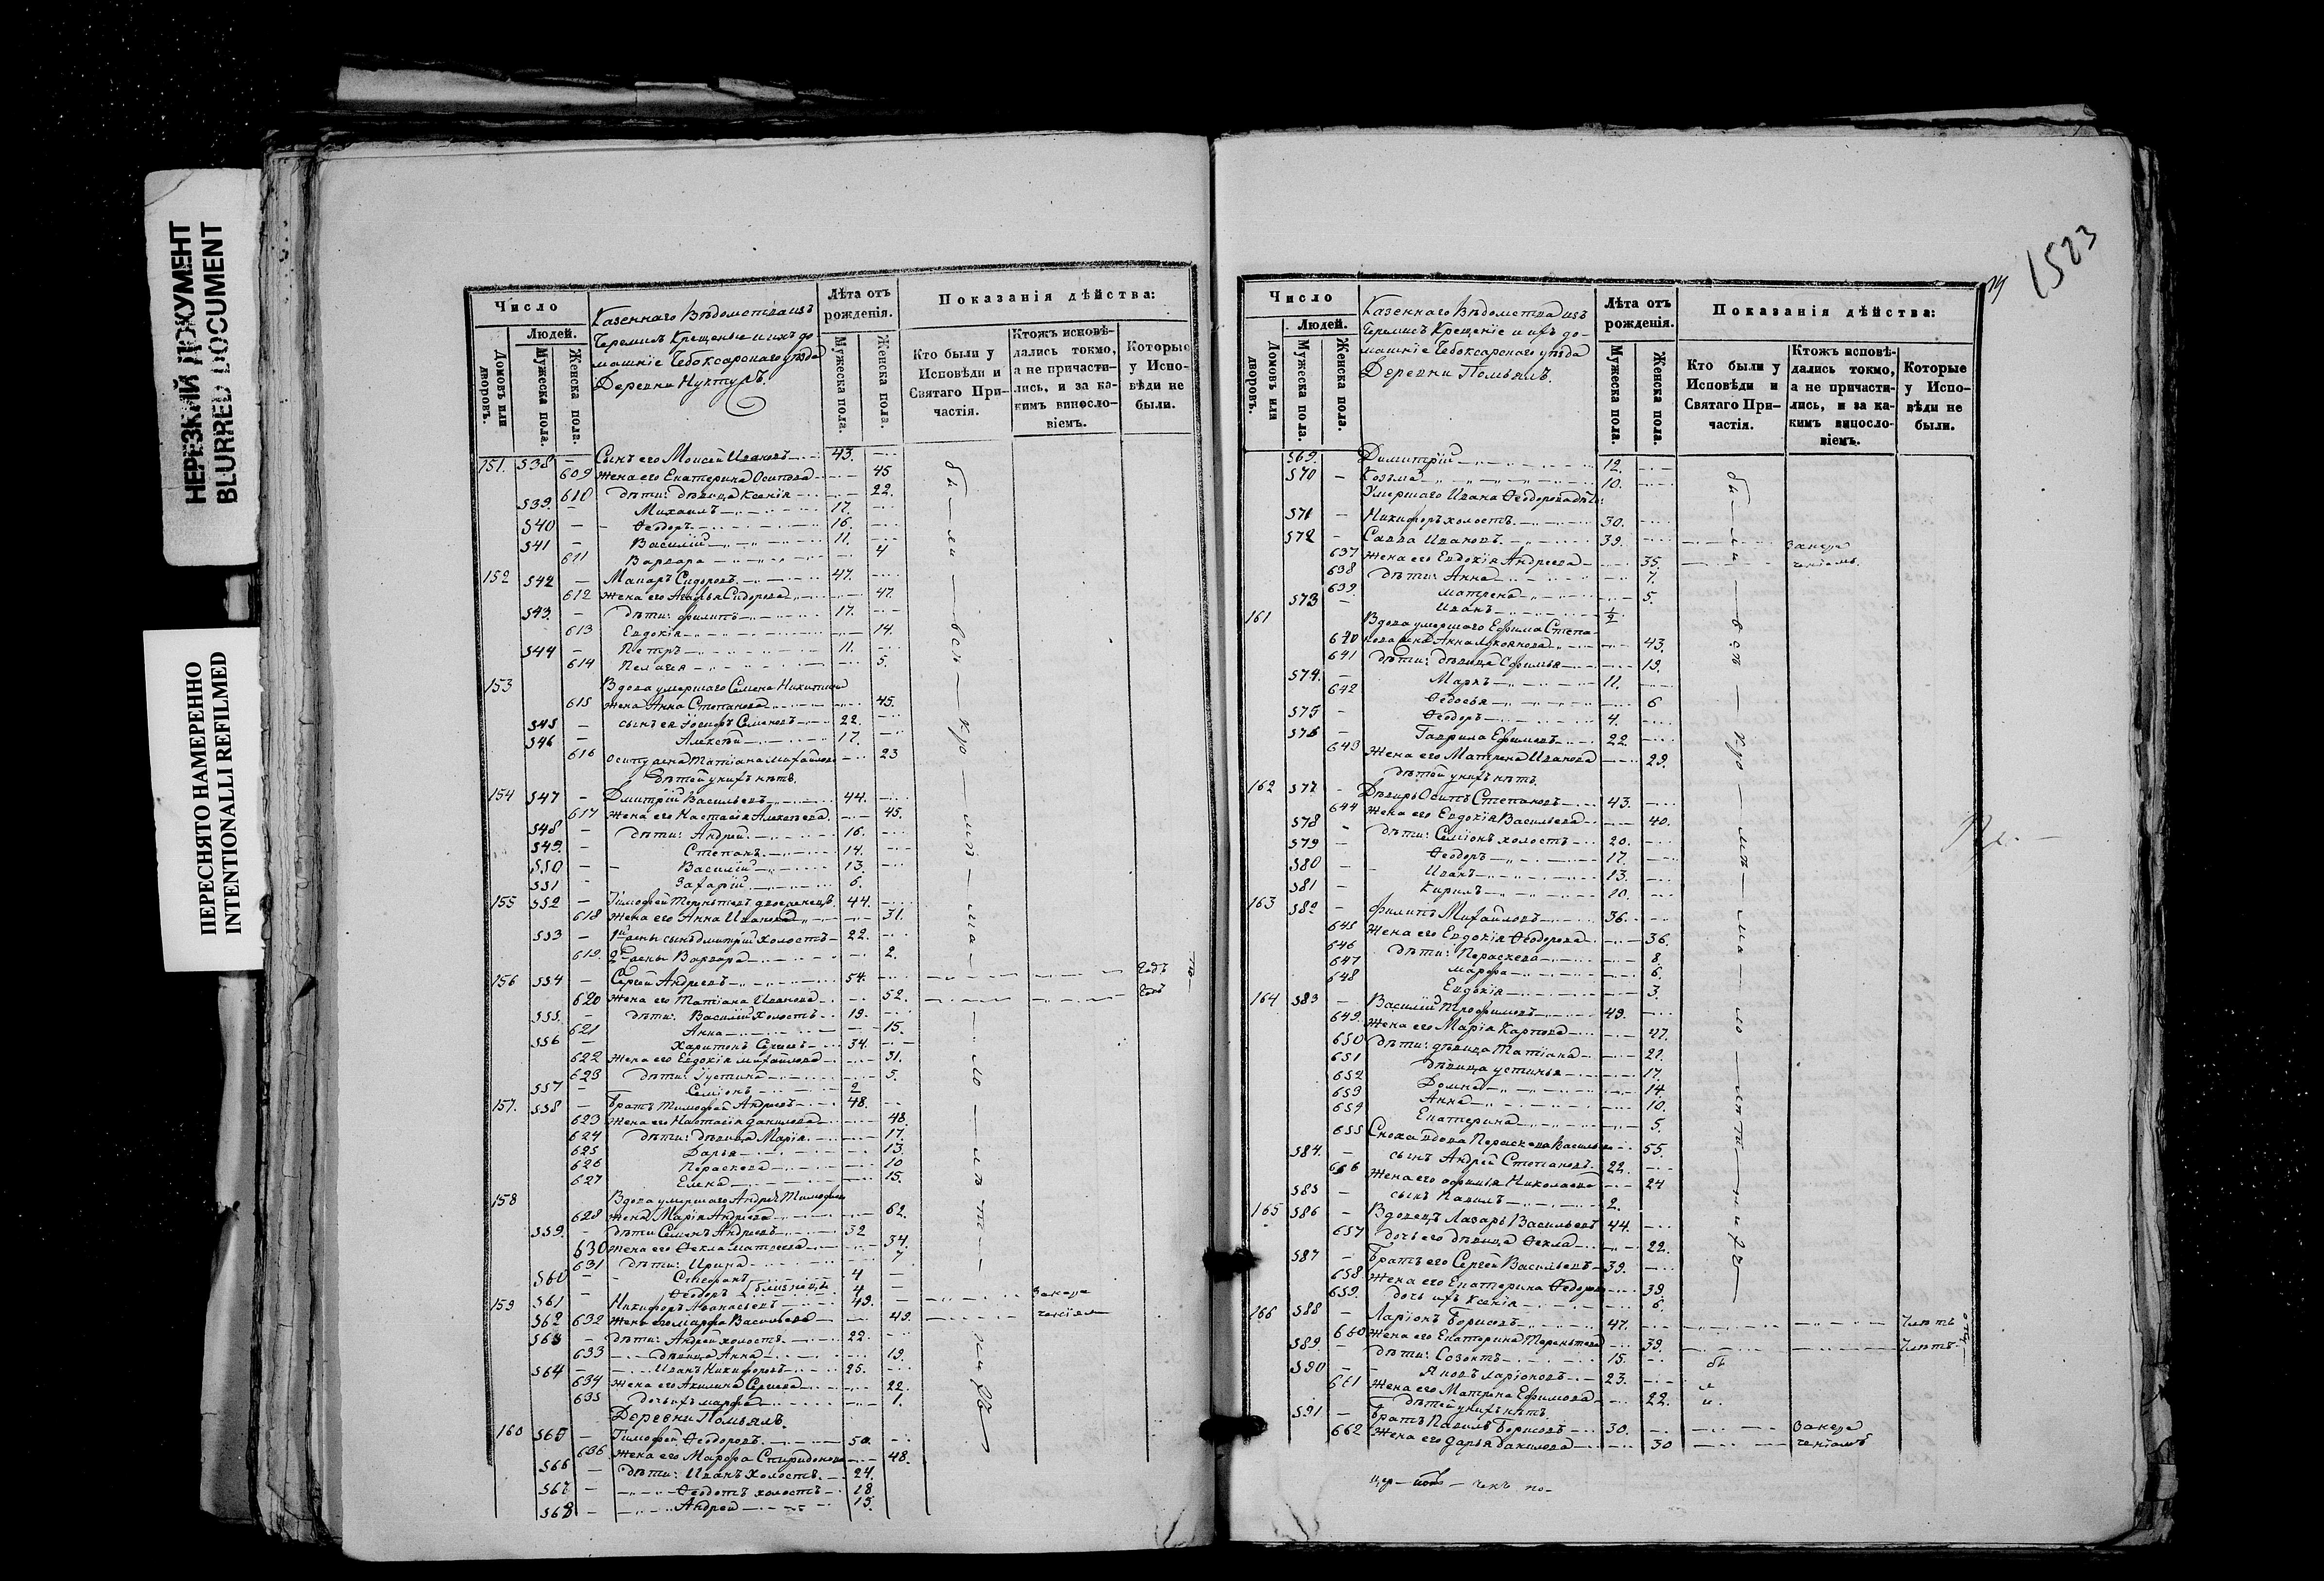 НЕРЕЗКИЙ ДОКУМЕНТ
BLURRED DOCUMENT
ПЕРЕСНЯТО НАМЕРЕННО
INTENTIONALLI REFILMED
Число
Людей.
Домовъ или дворовъ.
Мужеска пола.
Женска пола.
Казеннаго Вѣдомства изъ
Черемисъ Крещеные и ихъ до
машніе Чебоксарскаго уѣзда
Деревни Нуктужъ.
Лѣта отъ рожденія.
Мужеска пола.
Женска пола.
Показанія дѣйства:
Кто были у Исповѣди и Святаго При-частія.
Ктожъ исповѣ-дались токмо, а не причасти-лись, и за ка-кимъ винословіемъ.
Которые у Испо-вѣди не были.
151. 538 — Сынъ его Моисей Ивановъ 43.
609 Жена его Екатерина Осипова 45
610 дѣти: дѣвица Ксенія 22.
539. — Михаилъ 17.
540 — Ѳеодоръ 16.
541 — Василій 11.
611 Варвара 4
152 542 — Макаръ Сидоровъ 47.
612 Жена его Агафья Сидорова 47.
543. — дѣти: Филипъ 17.
613 Евдокія 14.
544 — Петръ 11.
614 Пелагея 5.
153 Вдова умершаго Семена Никитина
615 жена Анна Степанова 45.
545 — сынъ ея Іосифъ Семеновъ 22.
546 — Алексѣй 17.
616 Осипу жена Татіана Михайлова 23
дѣтей у нихъ нѣтъ.
154 547 — Дмитрій Васильевъ 44.
617 Жена его Настасія Алексѣева 45.
548 — дѣти: Андрей 16.
549. — Степанъ 14.
550 — Василій 13.
551 Захарій 6.
155 552 — Тимофей Терентьевъ двоеженецъ 44.
618 Жена его Анна Иванова 31.
553 — 1й жены сынъ Дмитрій холостъ 22.
619. 2й жены Варвара 2.
156 554 — Сергей Андреевъ 54.
620 Жена его Татіана Иванова 52.
555. — дѣти: Василій холостъ 19.
621 Анна 15.
556 — Харитонъ Сергеевъ 34.
622 Жена его Евдокія Михайлова 31.
623 дѣти: Устинья 5.
557 — Семіонъ 2
157. 558 — Братъ Тимофей Андреевъ 48.
623 Жена его Настасія Данилова 48.
624 дѣти: дѣвица Марія 17.
625 Дарья 13.
626 Параскева 10
627 Елена 15.
158 Вдова умершаго Андрея Тимофеева
628 жена Марія Андреева 62.
559. — дѣти Семенъ Андреевъ 32
630 Жена его Ѳекла Матвеева 34.
631 дѣти: Ирина 7
560 — Стефанъ 4
— Ѳеодоръ близнецы 4
159 561 Никифоръ Аѳанасьевъ 49.
562 632 Жена его Марфа Васильева 49.
563 — дѣти: Андрей холостъ 22.
633 дѣвица Анна 19.
564 — Иванъ Никифоровъ 25.
634 Жена его Акилина Сергеева 22.
635 дочь ихъ Марфа 1.
Деревни Помьялъ.
160 565 — Тимофей Ѳеодоровъ 50.
636 Жена его Марфа Спиридонова 48.
566 — дѣти: Иванъ холостъ 24.
567 — Ѳеодотъ холостъ 18
568 — Андрей 15.
1523
Число
Людей.
Домовъ или дворовъ.
Мужеска пола.
Женска пола.
Казеннаго Вѣдомства изъ
Черемисъ Крещеніе и ихъ до
машніе Чебоксарскаго уѣзда
Деревни Помьялъ.
Лѣта отъ рожденія.
Мужеска пола.
Женска пола.
Показанія дѣйства:
Кто были у Исповѣди и Святаго При-частія.
Ктожъ исповѣ-дались токмо, а не причасти-лись, и за ка-кимъ винословіемъ.
Которые у Испо-вѣди не были.
569. Димитрій 12.
570 — Козьма 10.
Умершаго Ивана Ѳеодорова дѣти:
571 — Никифоръ холостъ 30.
572 — Савва Ивановъ 39.
637 Жена его Евдокія Андреева 35.
638 дѣти: Анна 7.
639. Матрена 5.
573 — Иванъ 1/2
161 Вдова умершаго Ефима Степа-
640 нова жена Анна Лукоянова 43.
641 дѣти: дѣвица Софимья 19.
574. — Маркъ 11.
642 Ѳедосья 6
575 — Ѳеодоръ 4.
576 — Гаврила Ефимовъ 22.
643 Жена его Матрена Иванова 29.
дѣтей у нихъ нѣтъ.
162 577 — Деверь Осипъ Степановъ 43.
644 Жена его Евдокія Васильева 40.
578 — дѣти: Семіонъ холостъ 20.
579 — Ѳеодоръ 17.
580 — Иванъ 13.
581 — Кирилъ 10.
163 582 — Филипъ Михайловъ 36.
645 Жена его Евдокія Ѳеодорова 36.
646 дѣти: Параскева 8.
647 Марфа 6.
648 Евдокія 3.
164 583 — Василій Трофимовъ 49.
649. Жена его Марія Карпова 47.
650 дѣти: дѣвица Татіана 21.
651 дѣвица Устинья 17.
652 Домна 14.
653 Анна 10.
654 Екатерина 5.
655 Сноха вдова Параскева Васильева 55.
584. — сынъ Андрей Степановъ 22.
656 Жена его Софья Николаева 24
585 — сынъ Павилъ 2.
165 586 — Вдовецъ Лазарь Васильевъ 44.
657 дочь его дѣвица Ѳекла 22.
587 — Братъ его Сергей Васильевъ 39.
658. Жена его Екатерина Ѳедорова 39.
659. дочь ихъ Ксенія 6.
166 588 — Ларіонъ Борисовъ 47.
660 Жена его Екатерина Терентьева 39.
589. — дѣти: Созонтъ 15.
590 — Яковъ Ларіоновъ 23.
661 Жена его Матрена Ефимова 22.
дѣтей у нихъ нѣтъ.
591 — Братъ Павилъ Борисовъ 30.
662 Жена его Дарья Данилова 30